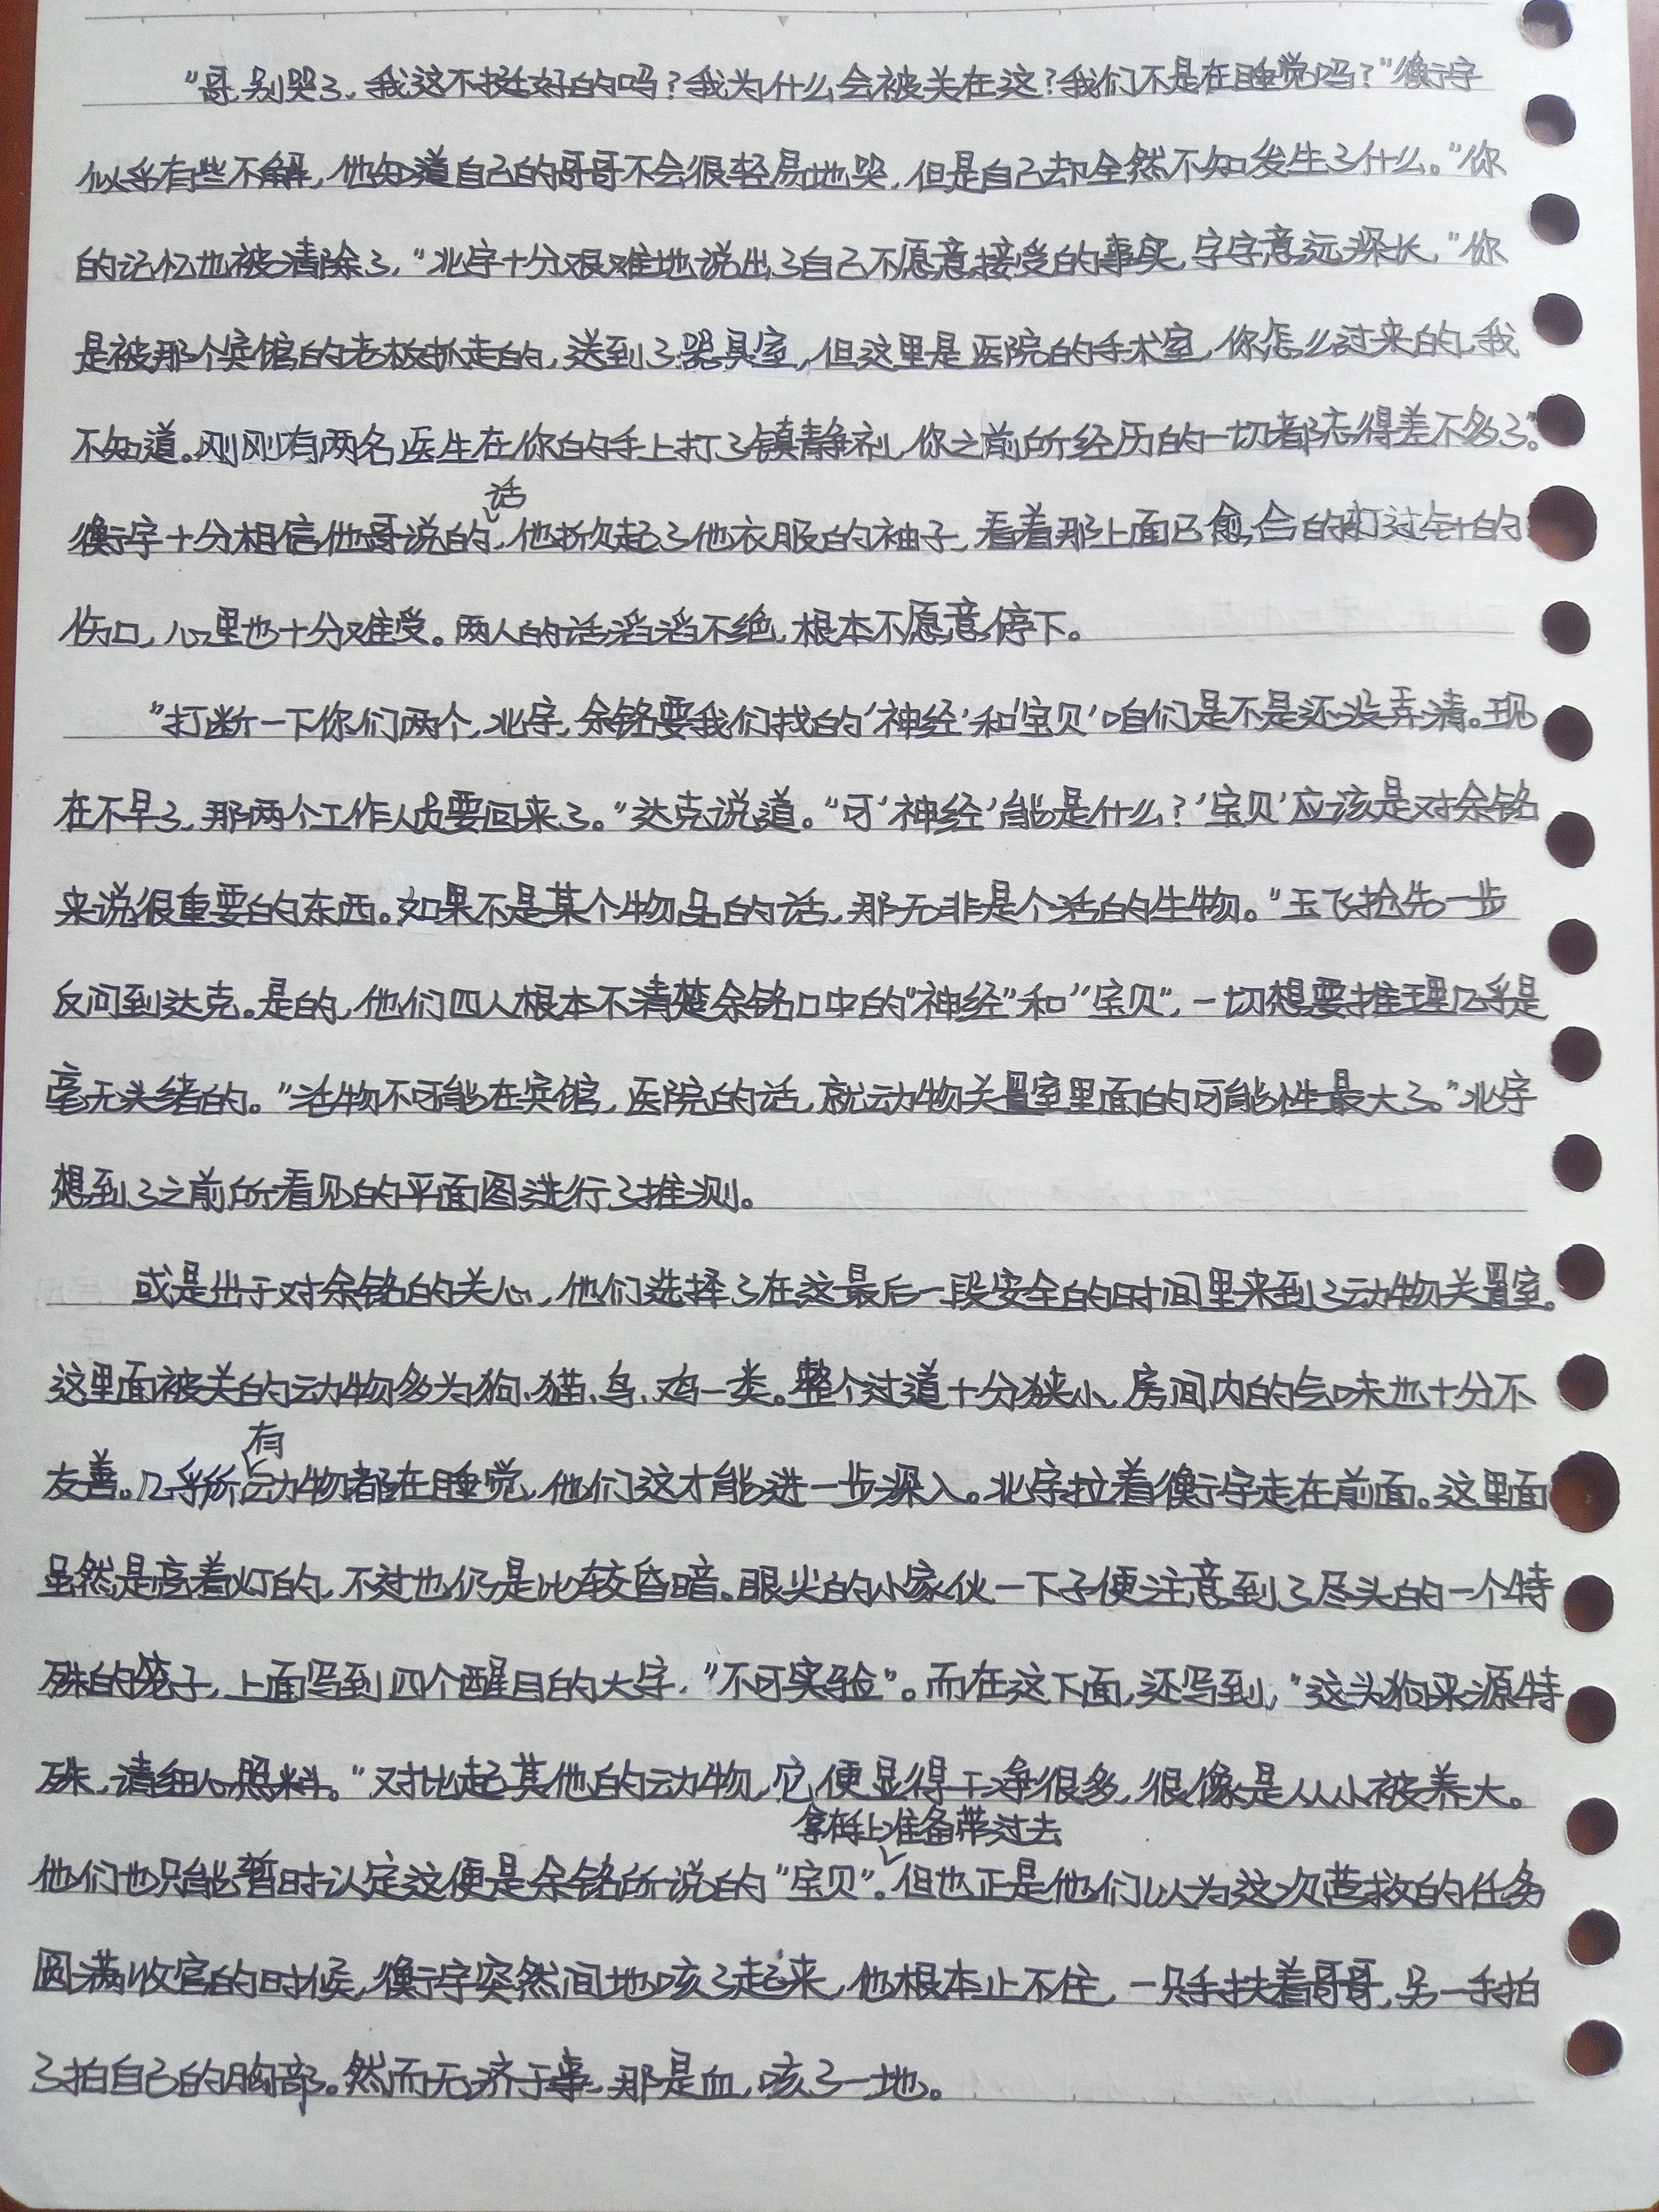 “哥,别哭了,我这不挺好的吗?我为什么会被关在这?我们不是在睡觉吗?”衡宇
似乎有些不解,他知道自己的哥哥不会很轻易地哭,但是自己却全然不知发生了什么。“你
的记忆也被清除了,”北宇十分艰难地说出了自己不愿意接受的事实,字字意远深长,“你
是被那个宾馆的老板抓走的,送到了器具室,但这里是医院的手术室,你怎么过来的,我
不知道。刚刚有两名医生在你的手上打了镇静剂,你之前所经历的一切都忘得差不多了。”
衡宇十分相信他哥说的话,他掀起了他衣服的袖子,看着那上面已愈合的打过针的
伤口,心里也十分难受。两人的话滔滔不绝,根本不愿意停下。
“打断一下你们两个,北宇,余铭要我们找的‘神经’和‘宝贝’咱们是不是还没弄清。现
在不早了,那两个工作人员要回来了。”达克说道。“可‘神经’能是什么?‘宝贝’应该是对余铭
来说很重要的东西。如果不是某个物品的话,那无非是个活的生物。”玉飞抢先一步
反问到达克。是的,他们四人根本不清楚余铭口中的“神经”和“宝贝”,一切想要推理几乎是
毫无头绪的。“活物不可能在宾馆,医院的话,就动物关置室里面的可能性最大了。”北宇
想到了之前所看见的平面图进行了推测。
或是出于对余铭的关心,他们选择了在这最后一段安全的时间里来到了动物关置室。
这里面被关的动物多为狗、猫、鸟、鸡一类。整个过道十分狭小,房间内的气味也十分不
友善。几乎所有动物都在睡觉,他们这才能进一步深入。北宇拉着衡宇走在前面。这里面
虽然是亮着灯的,不过也仍是比较昏暗。眼尖的小家伙一下子便注意到了尽头的一个特
殊的笼子,上面写到四个醒目的大字,“不可实验”。而在这下面,还写到,“这头狗来源特
殊,请细心照料。”对比起其他的动物,它便显得干净很多,很像是从小被养大。
他们也只能暂时认定这便是余铭所说的“宝贝”拿在手上准备带过去。但也正是他们以为这次营救的任务
圆满收官的时候,衡宇突然间地咳了起来,他根本止不住,一只手扶着哥哥,另一手拍
了拍自己的胸部。然而无济于事,那是血,咳了一地。